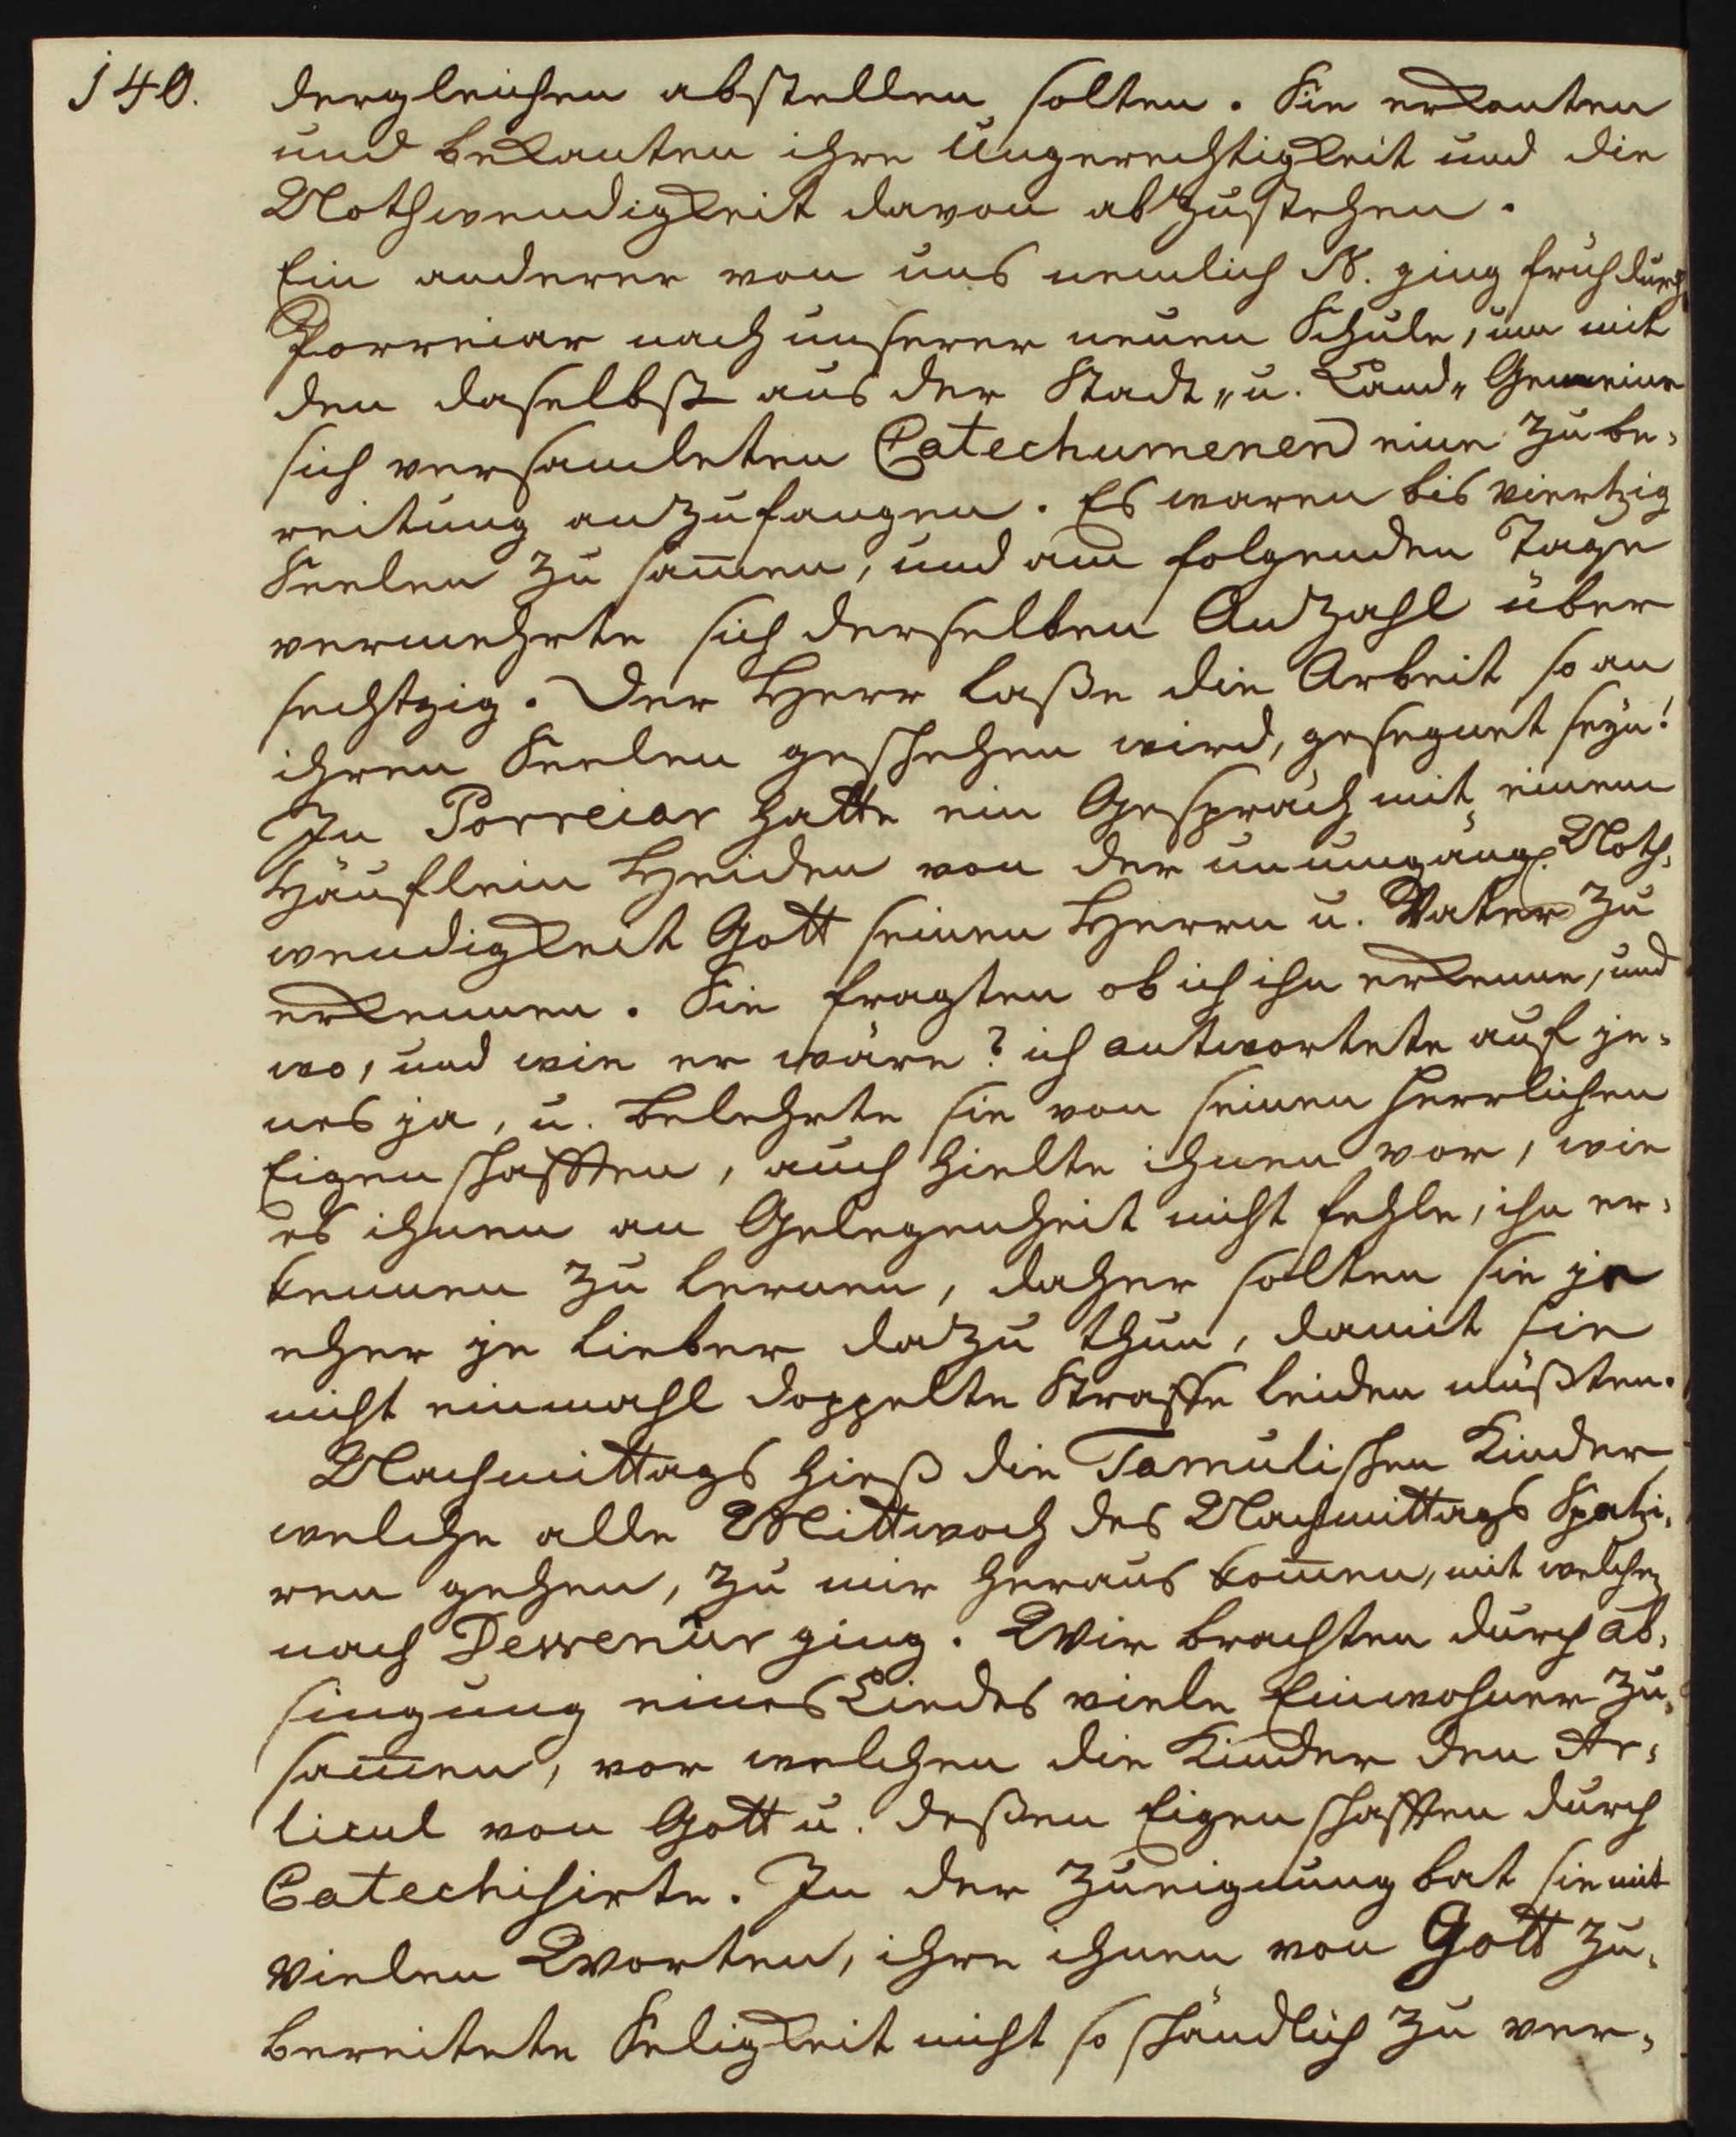 140.
dergleichen abstellen solten. Sie erkanten
und bekanten ihre Ungerechtigkeit und die
Nothwendigkeit davon abzustehen.
Ein anderer von uns nemlich N. ging früh durch
Porreiar nach unserer neuen Schule, um mit
den daselbst aus der Stadt„ u. Land„ Gemeine
sich versamleten Catechumenen eine Zube-
reitung anzufangen. Es waren bis viertzig
Seelen zu sam̄en, und am folgenden Tage
vermehrte sich derselben Anzahl über
sechtzig. Der Herr laße die Arbeit so an
ihren Seelen geschehen wird, gesegnet seyn!
In Porreiar hatte ein Gespräch mit einem
Häuflein Heiden von der unumgängl. Noth-
wendigkeit Gott seinen Herrn u. Vater zu
erkennen. Sie fragten ob ich ihn erkenne, und
wo, und wie er wäre? ich antwortete auf je-
nes ja, u. belehrte sie von seinen herrlichen
Eigenschafften, auch hielte ihnen vor, wie
es ihnen an Gelegenheit nicht fehle, ihn er-
kennen zu lernen, daher solten sie je
eher je lieber dazu thun, damit sie
nicht einmahl doppelte Straffe leiden müßten.
Nachmittags hieß die Tamulischen Kinder
welche alle Mittwoch des Nachmittags Spatzi-
ren gehen, zu mir heraus kom̄en, mit welchen
nach Dewenur ging. Wir brachten durch ab-
singung eines Liedes viele Einwohner zu-
sam̄en, vor welchen die Kinder den Ar-
ticul von Gott u. deßen Eigenschafften durch
Catechisirte. In der Zueignung bat sie mit
vielen Worten, ihre ihnen von Gott zu-
bereitete Seligkeit nicht so schändlich zu ver-